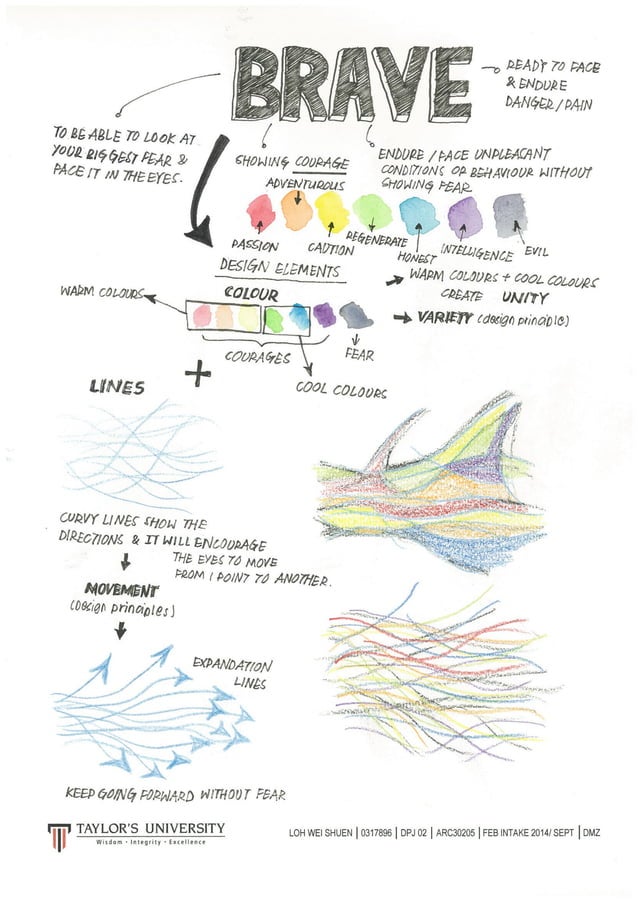 BRAVE
READY TO FACE
& ENDURE
DANGER/PAIN
TO BE ABLE TO LOOK AT
YOUR BIGGEST FEAR &
FACE IT IN THE EYES.
SHOWING COURAGE
ENDURE / FACE UNPLEASANT
CONDITIONS OR BEHAVIOUR WITHOUT
SHOWING FEAR
ADVENTUROUS
PASSION
CAUTION
REGENERATE
HONEST
INTELLIGENCE
EVIL
DESIGN ELEMENTS
WARM COLOURS + COOL COLOURS
CREATE UNITY
VARIETY (design principle)
WARM COLOURS
COLOUR
COURAGES
FEAR
COOL COLOURS
+
LINES
CURVY LINES SHOW THE
DIRECTIONS & IT WILL ENCOURAGE
THE EYES TO MOVE
FROM 1 POINT TO ANOTHER.
MOVEMENT
(design principles)
EXPANDATION
LINES
KEEP GOING FORWARD WITHOUT FEAR
TAYLOR'S UNIVERSITY
Wisdom • Integrity • Excellence
LOH WEI SHUEN | 0317896 | DPJ 02 | ARC30205 | FEB INTAKE 2014/ SEPT | DMZ